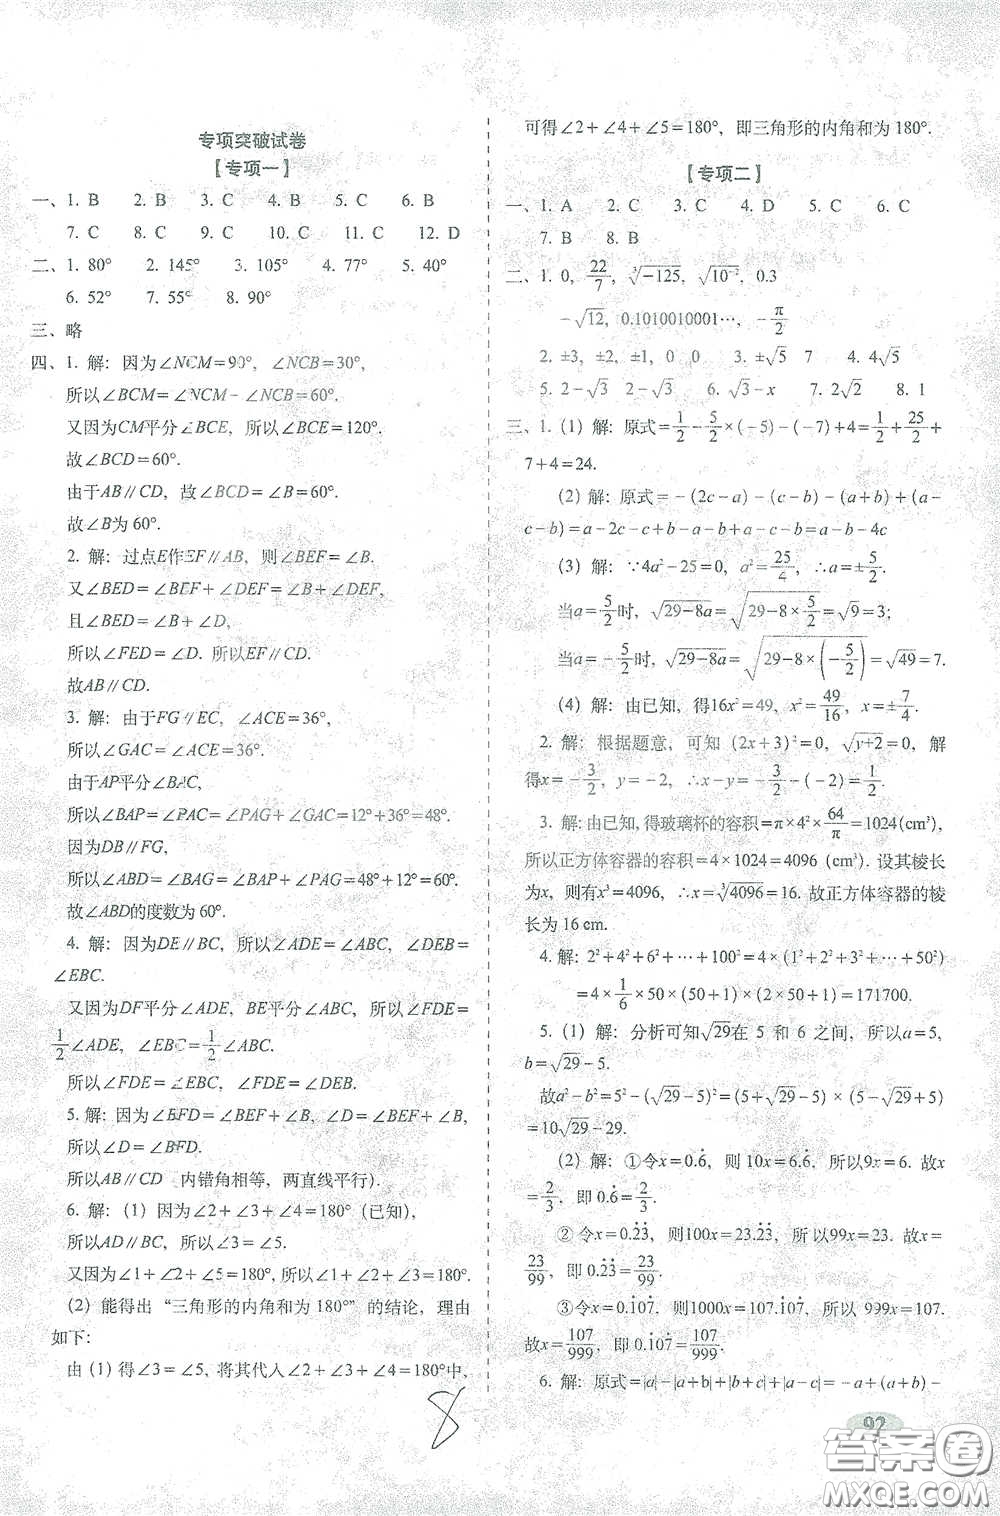 专项突破试卷
【专项一】
一、1. B 2. B 3. C 4. B 5. C 6. B
7. C 8. C 9. C 10. C 11. C 12. D
二、1. 80° 2. 145° 3. 105° 4. 77° 5. 40°
6. 52° 7. 55° 8. 90°
三、略
四、1. 解：因为∠NCM=90°，∠NCB=30°，
所以∠BCM=∠NCM-∠NCB=60°.
又因为CM平分∠BCE，所以∠BCE=120°.
故∠BCD=60°.
由于AB∥CD，故∠BCD=∠B=60°.
故∠B为60°.
2. 解：过点E作EF∥AB，则∠BEF=∠B.
又∠BED=∠BEF+∠DEF，
且∠BED=∠B+∠D，
所以∠FED=∠D. 所以EF∥CD.
故AB∥CD.
3. 解：由于FG∥EC，∠ACE=36°，
所以∠GAC=∠ACE=36°.
由于AP平分∠BAC，
所以∠BAP=∠PAC=∠PAG+∠GAC=12°+36°=48°.
因为DB∥FG，
所以∠ABD=∠BAG=∠BAP+∠PAG=48°+12°=60°.
故∠ABD的度数为60°.
4. 解：因为DE∥BC，所以∠ADE=∠ABC，∠DEB=
∠EBC.
又因为DF平分∠ADE，BE平分∠ABC，所以∠FDE=
1/2∠ADE，∠EBC=1/2∠ABC.
所以∠FDE=∠EBC，∠FDE=∠DEB.
5. 解：因为∠BFD=∠BEF+∠B，∠D=∠BEF+∠B，
所以∠D=∠BFD.
所以AB∥CD 内错角相等，两直线平行).
6. 解：(1) 因为∠2+∠3+∠4=180°(已知)，
所以AD∥BC，所以∠3=∠5.
又因为∠1+∠2+∠5=180°，所以∠1=∠3+∠4.
(2) 能得出“三角形的内角和为180°”的结论，理由
如下：
由 (1) 得∠3=∠5，将其代人∠2+∠3+∠4=180°中，
可得∠2+∠4+∠5=180°，即三角形的内角和为180°.
【专项二】
一、1. A 2. C 3. C 4. D 5. C 6. C
7. B 8. B
二、1. 0，22/7，∛-125，√10⁻²，0.3
-√12，0.1010010001…，-π/2
2. ±3，±2，±1，0 0 3. ±√5 7 4. 4√5
5. 2-√3 2-√3 6. √3-x 7. 2√2 8. 1
三、1. (1) 解：原式=1/2-5/2×(-5)-(-7)+4=1/2+25/2+
7+4=24.
(2) 解：原式=-(2c-a)-(c-b)-(a+b)+(a-
c-b)=a-2c-c+b-a-b+a-c-b=a-b-4c
(3) 解：∵4a²-25=0，a²=25/4，∴a=±5/2.
当a=5/2时，√29-8a=√29-8×5/2=√9=3；
当a=-5/2时，√29-8a=√29-8×(-5/2)=√49=7.
(4) 解：由已知，得16x²=49，x²=49/16，x=±7/4.
2. 解：根据题意，可知 (2x+3)²=0，√y+2=0，解
得x=-3/2，y=-2，∴x-y=-3/2-(-2)=1/2.
3. 解：由已知，得玻璃杯的容积=π×4²×64/π=1024(cm³)，
所以正方体容器的容积=4×1024=4096 (cm³). 设其棱长
为x，则有x³=4096，∴x=∛4096=16. 故正方体容器的棱
长为16 cm.
4. 解：2²+4²+6²+…+100²=4×(1²+2²+3²+…+50²)
=4×1/6×50×(50+1)×(2×50+1)=171700.
5. (1) 解：分析可知√29在 5 和 6 之间，所以a=5，
b=√29-5.
故a²-b²=5²-(√29-5)²=(5+√29-5)×(5-√29+5)
=10√29-29.
(2) 解：①令x=0.6̇，则 10x=6.6̇，所以9x=6. 故x
=2/3，即 0.6̇=2/3.
② 令x=0.2̇3̇，则100x=23.2̇3̇，所以 99x=23. 故x=
23/99，即0.2̇3̇=23/99.
③令x=0.1̇07̇，则1000x=107.1̇07̇，所以 999x=107.
故x=107/999，即 0.1̇07̇=107/999.
6. 解：原式=|a|-|a+b|+|b+c|+|a-c|=-a+(a+b)-
8
92
答案圈
MXQE.COM